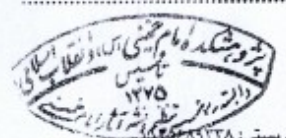 پژوهشکده امام خمینی(س) و انقلاب اسلامی
تأسیس
۱۳۷۵
وابسته به مؤسسه تنظیم و نشر آثار امام خمینی